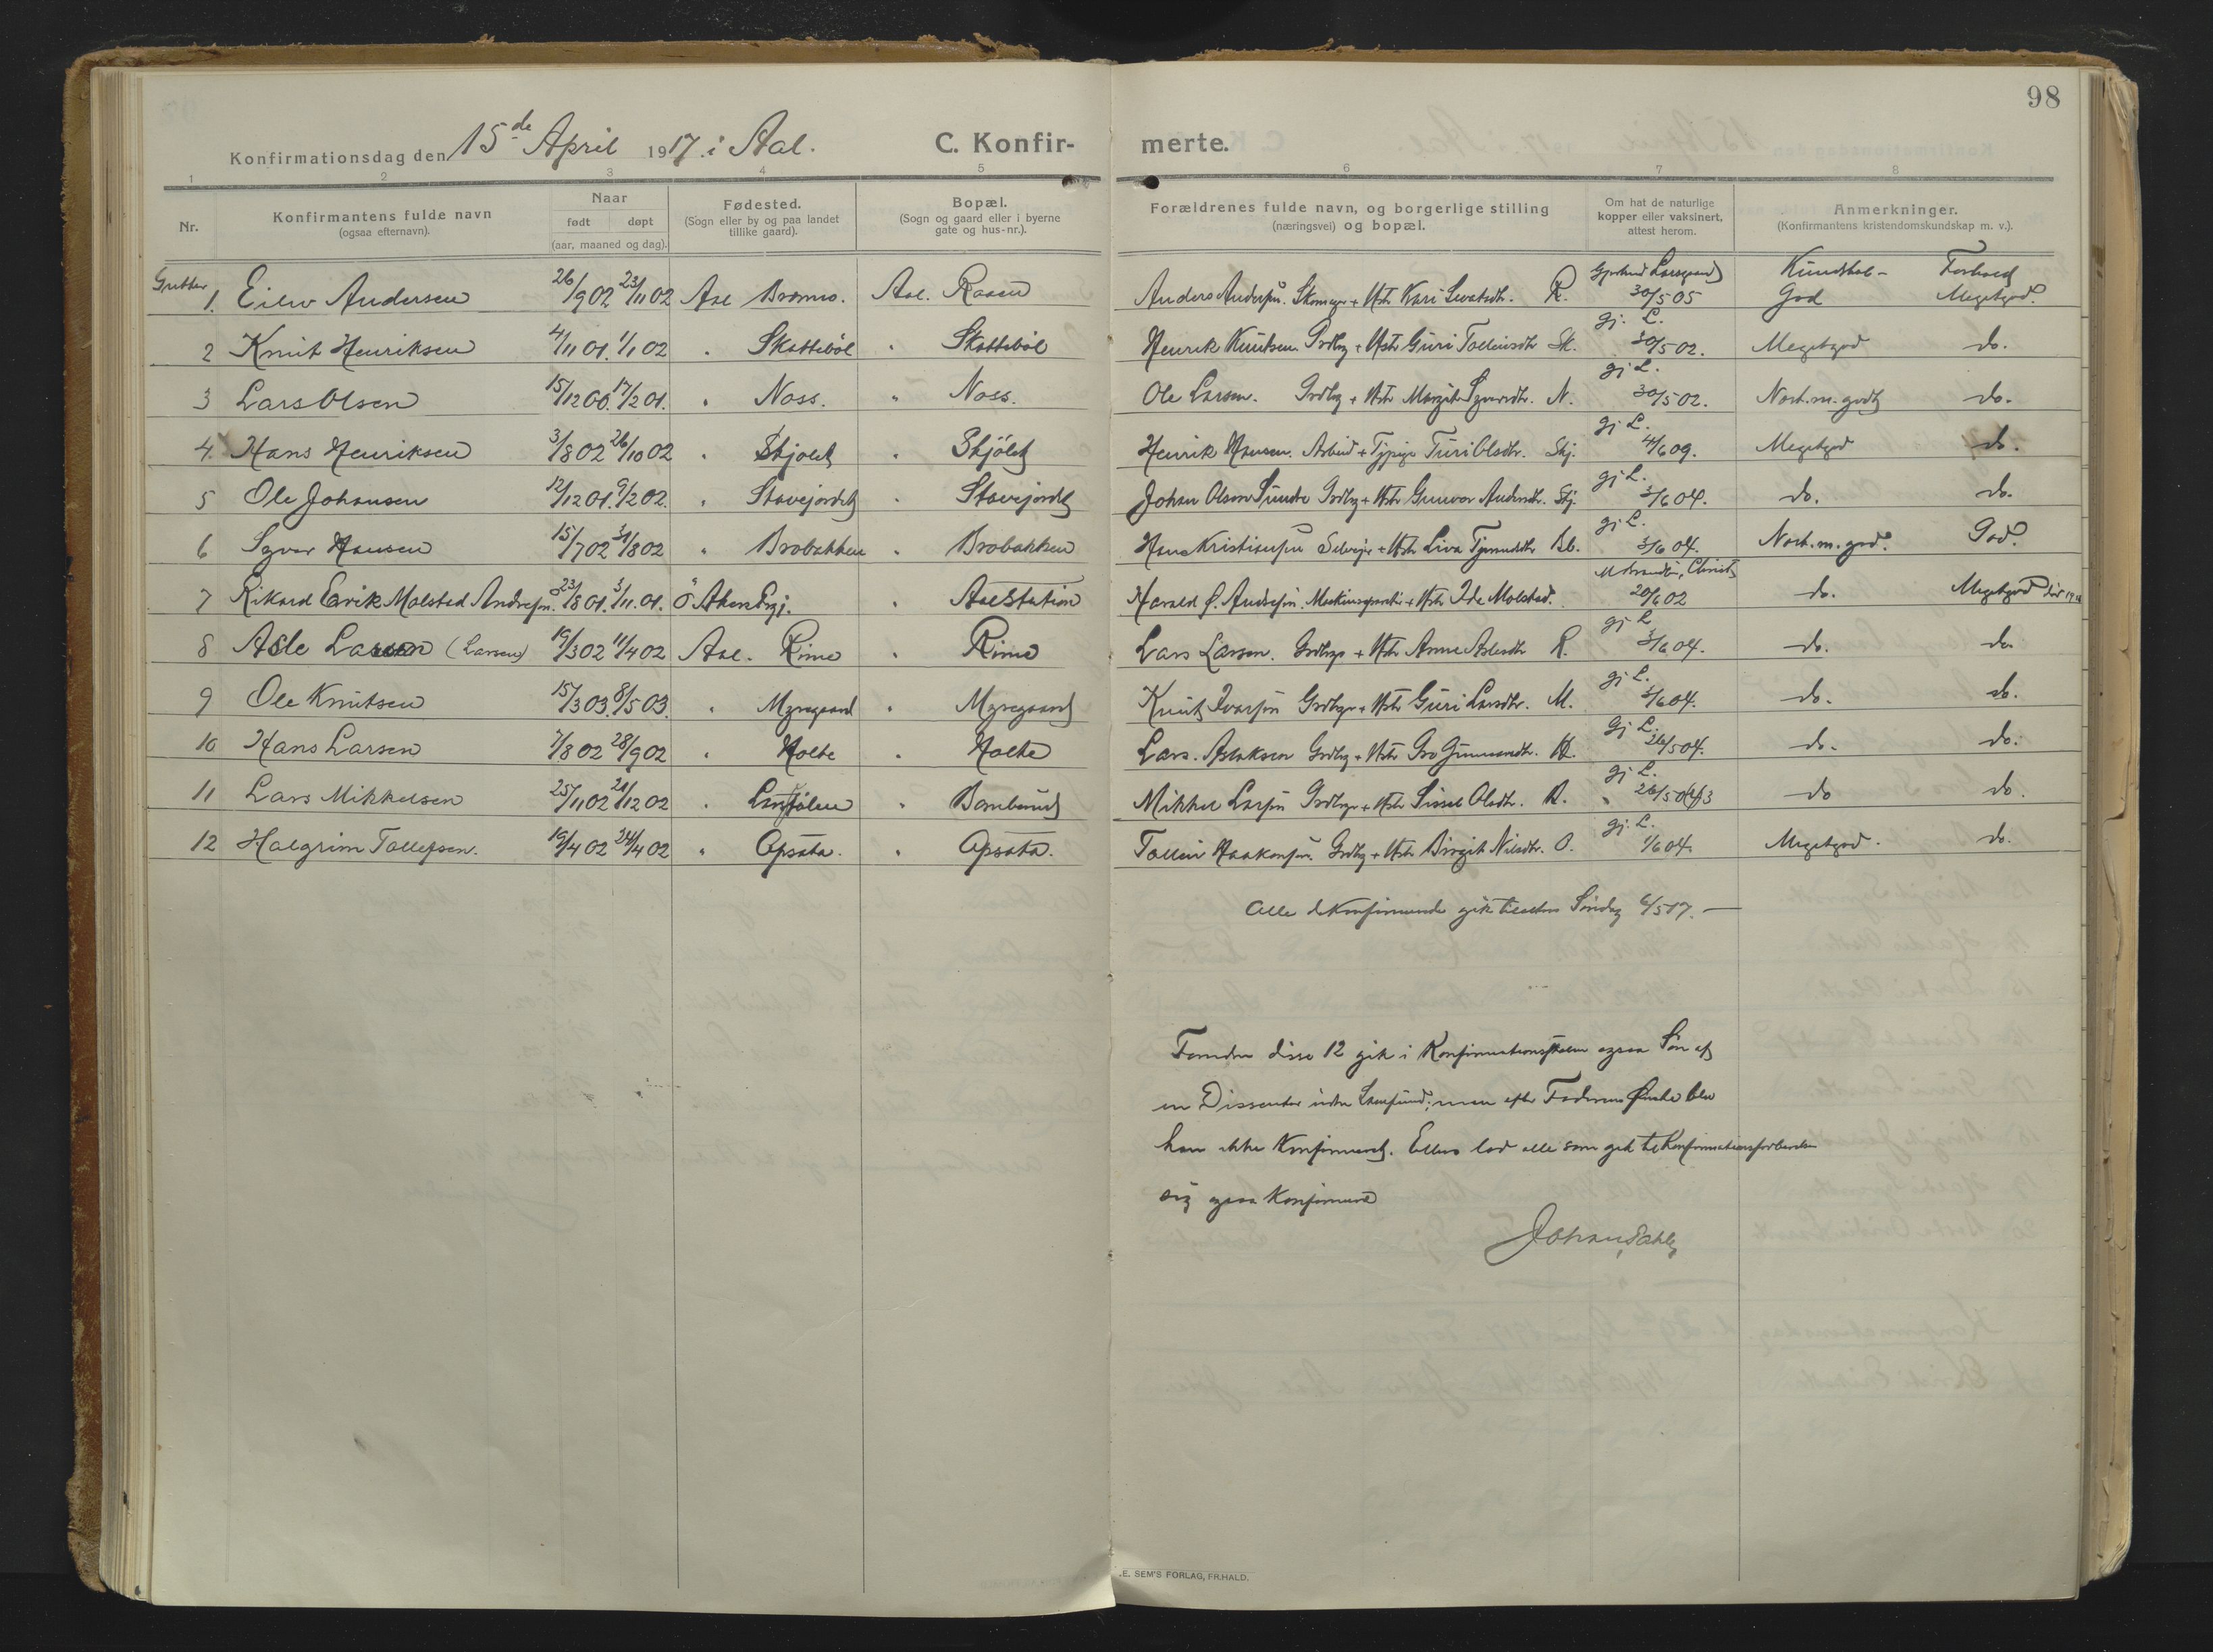 98
Konfirmationsdag den 15de April 1917 i Aal. C. Konfirmerte.
1 2 3 4 5 6 7 8
Nr. Konfirmantens fulde navn (ogsaa efternavn). Naar født døpt (aar, maaned og dag). Fødested. (Sogn eller by og paa landet tillike gaard). Bopæl. (Sogn og gaard eller i byerne gate og hus-nr.). Forældrenes fulde navn, og borgerlige stilling (næringsvei) og bopæl. Om hat de naturlige kopper eller vaksinert, attest herom. Anmerkninger. (Konfirmantens kristendomskundskap m. v.).
Gutter Kundskab- Forhold
1. Eiliv Andersen 26/9 02 23/11 02 Aal Bromo. Aal. Raaen Anders Andersen. Skomager + Hstr Kari R. 30/5 05 God Megetgod.
2 Knut Henriksen 4/11 01. 1/1 02 " Skottebøl " Skottebøl Henrik Knutsen Grdbg + Hstr Guri Tolleivsdtr Sk. gj. L. 30/5 02. Megetgod do.
3 Lars Olsen 15/12 00. 17/2 01. " Noss. " Noss. Ole Larsen. Grdbg + Hstr Margit N. gj L. 30/5 02. Nok. m. godt do.
4. Hans Henriksen 3/8 02 26/10 02 " Skjolet " Skjölet Henrik Hansen. Arbeid + Turi Olsdtr. Skj. gj L. 4/6 09. Megetgod do.
5 Ole Johansen 12/12 01. 9/2 02. " Stavejordet " Stavejordet Johan Olsen Sundre Grdbg + Hstr Gunvor Andersdtr. Stj. gj L. 3/6 04. do. do.
6 Sgvar Hansen 15/7 02 31/8 02 " Brobakken " Brobakken Hans Kristiansen Selveier + Hstr Liva Bb. gj L. 3/6 04. Nok. m. god. God.
7 Rikard Eirik Molstad Andresen. 23/8 01. 3/11 01. Ö Aker Prgj. " Aal Station Harald Andresen. + Hstr Ida Molstad. 20/6 02 do. Megetgod
8 Asle Larsen (Larsen) 19/3 02 11/4 02 Aal. Rime " Rime Lars Larsen. Grdbgr + Hstr Anne Aslesdtr R. gj L 3/6 04. do. do.
9 Ole Knutsen 15/3 03. 8/5 03. " Myregaard " Myregaard Knut Ivarsen Grdbgr + Hstr Guri Larsdtr. M. gj L. 3/6 04. do. do.
10 Hans Larsen 7/8 02 28/9 02 " Holte " Holte Lars. Aslaksen Grdbg + Hstr Gro H. gj L. 26/5 04. do. do.
11 Lars Mikkelsen 25/11 02 21/12 02 " " Mikkel Larsen Grdbgr + Hstr Sissel Olsdtr. gj L. do do.
12 Halgrim Tollefsen. 19/4 02 24/4 02 " Opsata. " Opsata. Tollev Haakonsen. Grdbg + Hstr Birgit Nilsdtr. O. gj. L. 1/6 04. Megetgod. do.
Alle de Konfirmerede gik tilalters Søndag 6/5 17. —
Foruden disse 12 gik i Konfirmationsskolen ogsaa Søn af
en Dissenter uden Samfund; men efter Faderens Ønske blev
han ikke Konfirmeret. Ellers lod alle som gik til Konfirmationsforberedelse
sig ogsaa Konfirmere
Johan Dahl
E. SEM'S FORLAG, FR.HALD.